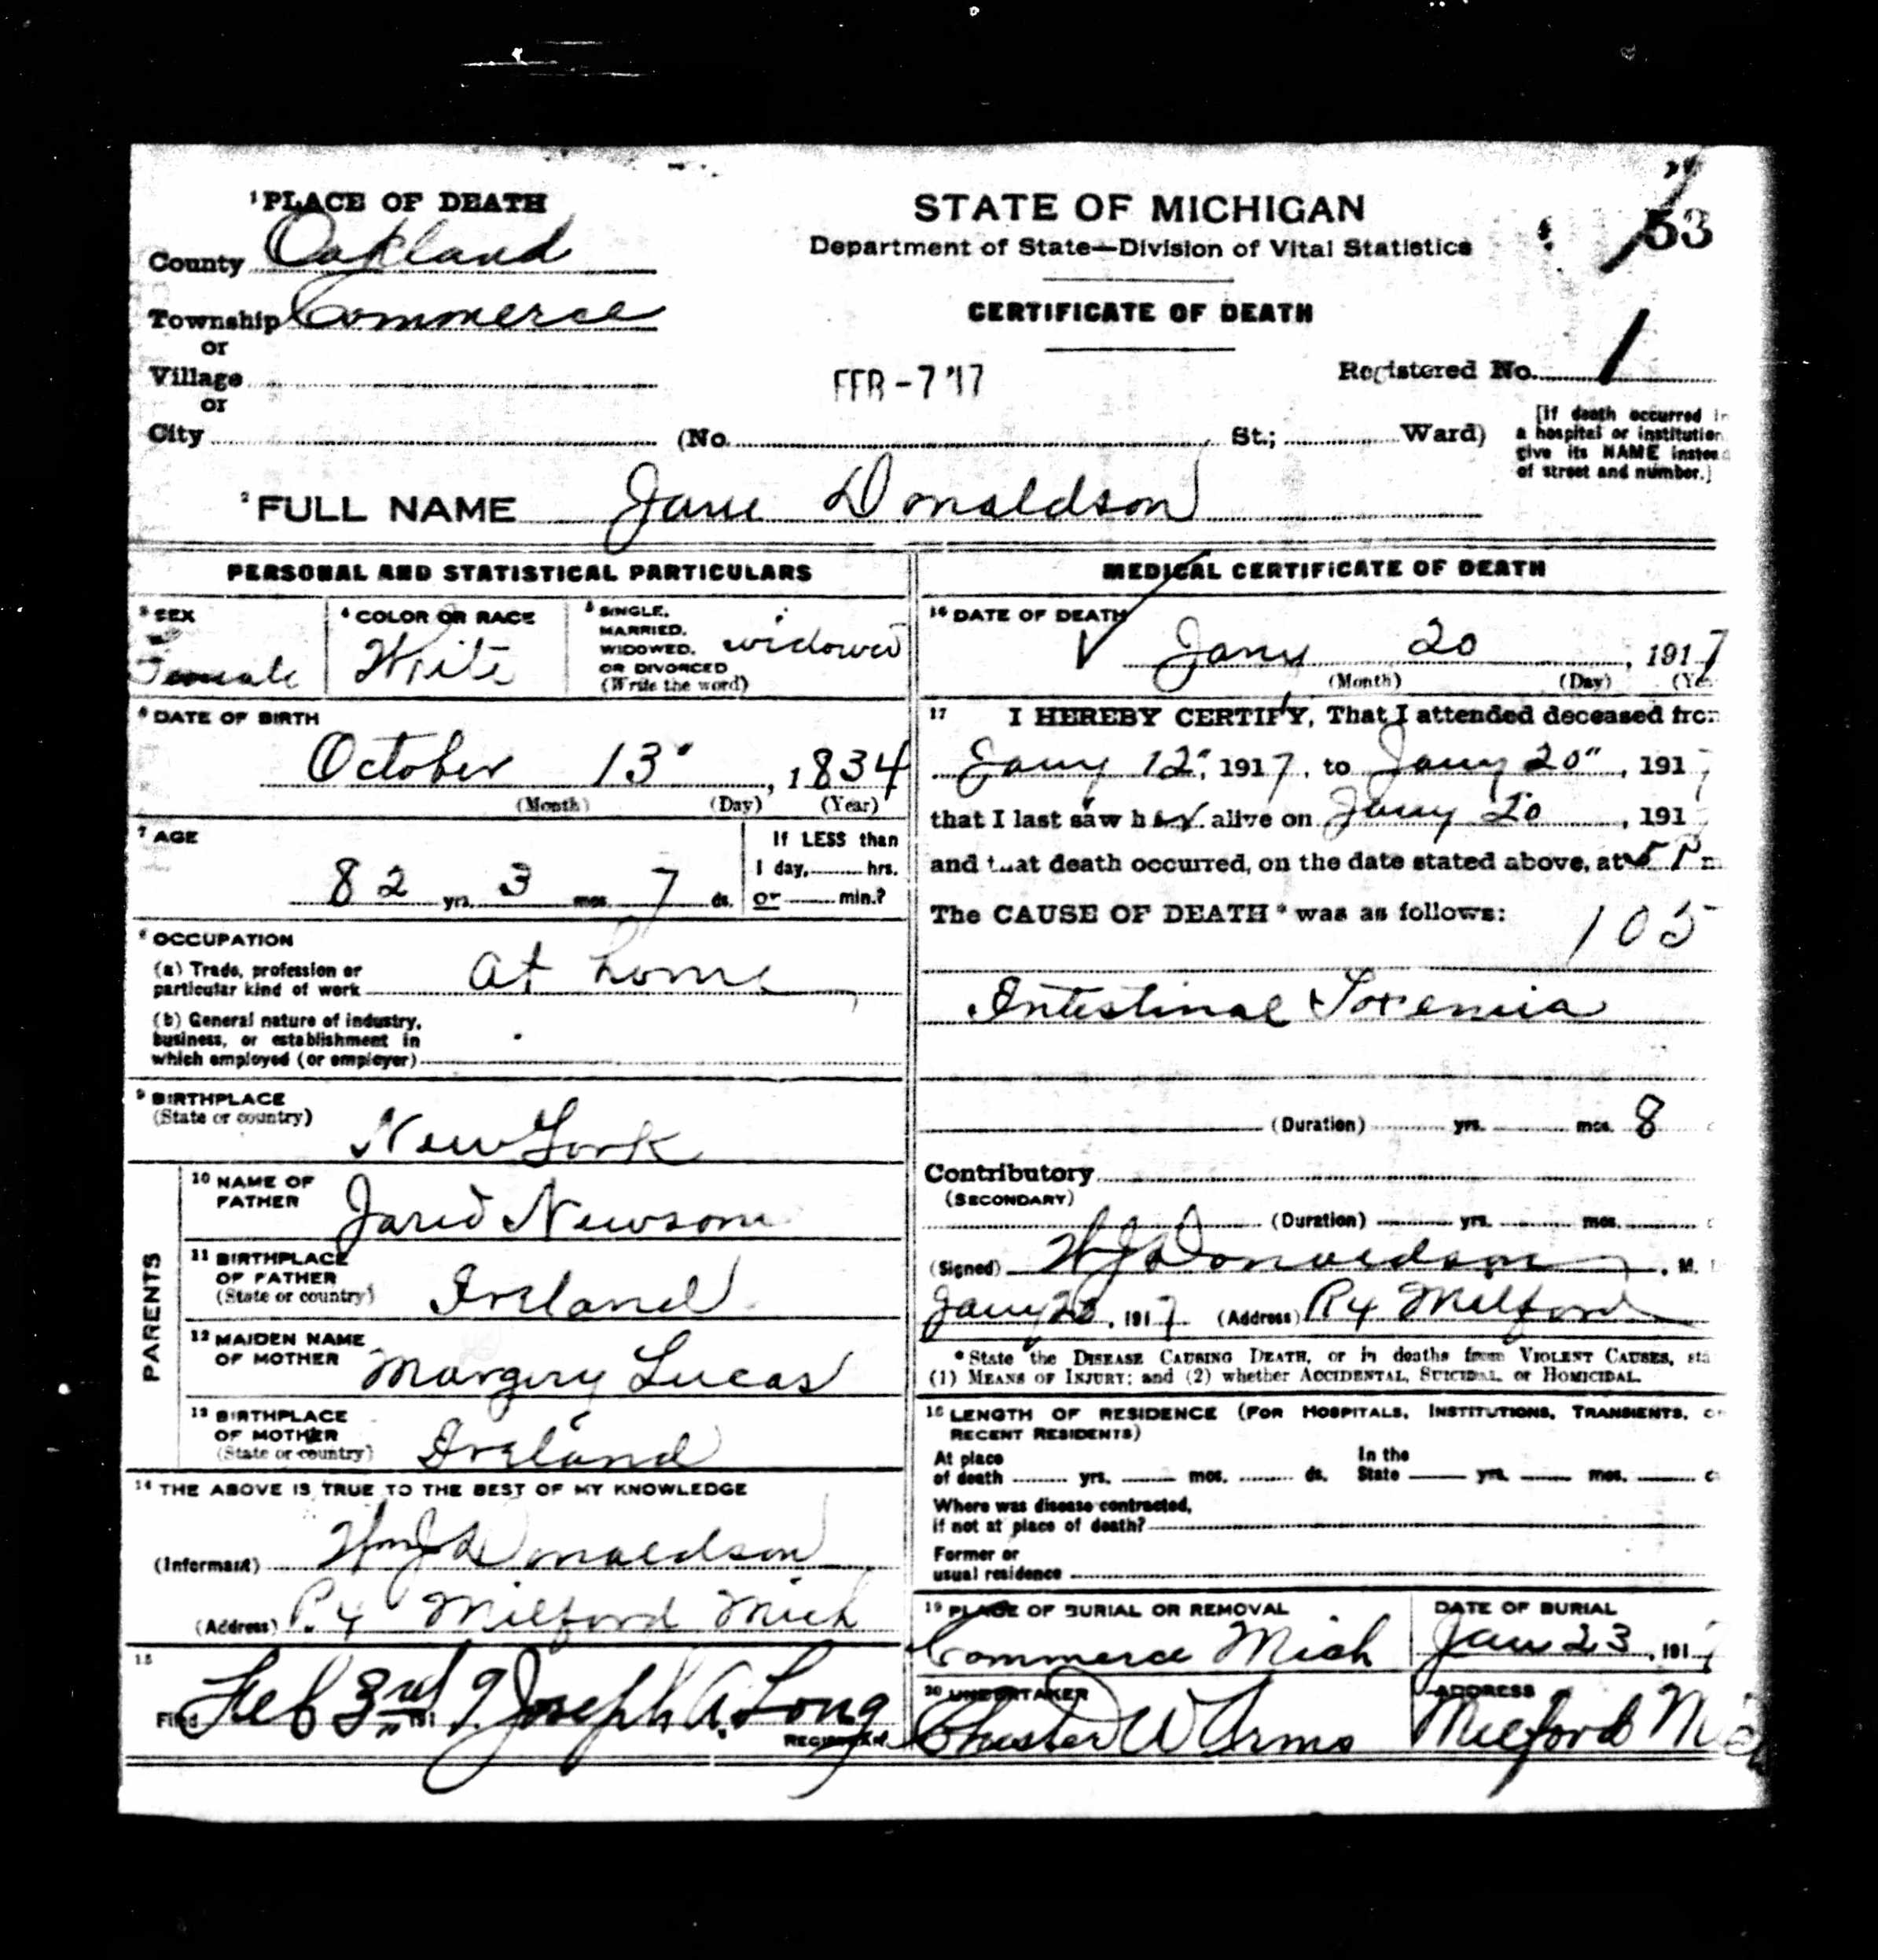 1 PLACE OF DEATH
County Oakland
Township Commerce
or
Village
or
City (No. St.; Ward)
STATE OF MICHIGAN
Department of State—Division of Vital Statistics
53
CERTIFICATE OF DEATH
FEB -7 '17
Registered No. 1
[If death occurred in
a hospital or institution
give its NAME instead
of street and number.]
2 FULL NAME Jane Donaldson
PERSONAL AND STATISTICAL PARTICULARS
3 SEX
Female
4 COLOR OR RACE
White
5 SINGLE,
MARRIED,
WIDOWED,
OR DIVORCED
(Write the word)
widowed
6 DATE OF BIRTH
October 13" , 1834
(Month) (Day) (Year)
7 AGE
82 yrs. 3 mos. 7 ds.
If LESS than
1 day, hrs.
or min.?
8 OCCUPATION
(a) Trade, profession or
particular kind of work at home
(b) General nature of industry,
business, or establishment in
which employed (or employer)
9 BIRTHPLACE
(State or country)
New York
PARENTS
10 NAME OF
FATHER
Jared Newsom
11 BIRTHPLACE
OF FATHER
(State or country)
Ireland
12 MAIDEN NAME
OF MOTHER
Margery Lucas
13 BIRTHPLACE
OF MOTHER
(State or country)
Ireland
14 THE ABOVE IS TRUE TO THE BEST OF MY KNOWLEDGE
(Informant) Wm J Donaldson
(Address) R. 4 Milford Mich
15
Filed Feb 3rd 191 7 Joseph A. Long
REGISTRAR
MEDICAL CERTIFICATE OF DEATH
16 DATE OF DEATH
Jany 20 , 1917
(Month) (Day) (Ye
17 I HEREBY CERTIFY, That I attended deceased from
Jany 12", 1917, to Jany 20", 191
that I last saw her alive on Jany 20 , 191
and that death occurred, on the date stated above, at 5 P m
The CAUSE OF DEATH* was as follows:
105
Intestinal Toxemia
(Duration) yrs. mos. 8
Contributory
(SECONDARY)
(Duration) yrs. mos.
(Signed) W J Donaldson , M.
Jany 20, 1917. (Address) R 4 Milford
*State the DISEASE CAUSING DEATH, or in deaths from VIOLENT CAUSES, sta
(1) MEANS OF INJURY; and (2) whether ACCIDENTAL, SUICIDAL, or HOMICIDAL.
18 LENGTH OF RESIDENCE (FOR HOSPITALS, INSTITUTIONS, TRANSIENTS, or
RECENT RESIDENTS)
At place
of death yrs. mos. ds.
In the
State yrs. mos.
Where was disease contracted,
if not at place of death?
Former or
usual residence
19 PLACE OF BURIAL OR REMOVAL
Commerce Mich
DATE OF BURIAL
Jan 23, 191
20 UNDERTAKER
Chester W Arms
ADDRESS
Milford Mich